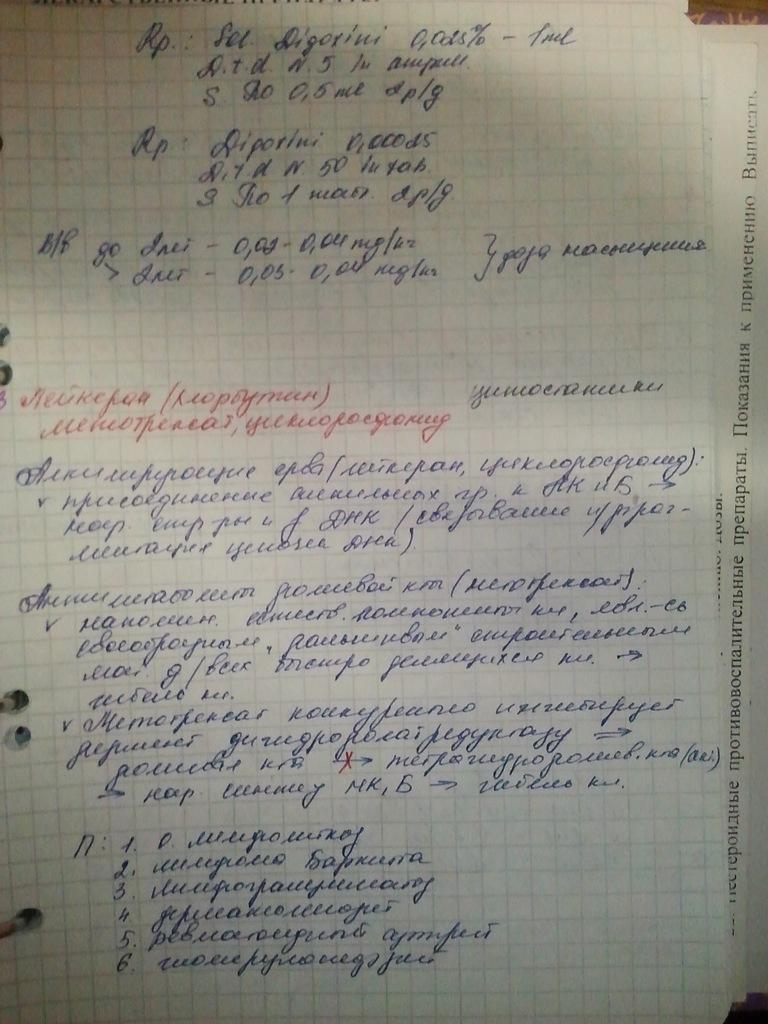 ЛЕКАРСТВЕННЫЕ ПРЕПАРАТЫ.
Rp.: Sol. Digoxini 0,025% - 1ml
D.t.d. N. 5 in ampull.
S. По 0,5 ml 2р/д
Rp: Digoxini 0,00025
D.t.d N. 50 in tab.
S По 1 табл. 2р/д.
В/в до 2лет - 0,03-0,04 mg/кг } доза насыщения
> 2лет - 0,03-0,04 mg/кг
Лейкеран (хлорбутин) цитостатики
метотрексат, циклофосфамид
Алкилирующие ср-ва (лейкеран, циклофосфамид):
v присоединение алкильных гр. к НК и Б →
нар. стр-ры и f ДНК (связывание и фраг-
ментация цепочек ДНК)
Антиметаболиты фолиевой к-ты (метотрексат):
v напомин. естеств. компоненты кл, явл.-сь
своеобразным „фальшивым“ строительным
мат. д/всех быстро делящихся кл. →
гибель кл.
v Метотрексат конкурентно ингибирует
фермент дигидрофолатредуктазу ⇒
фолиевая к-та → тетрагидрофолиев. к-та (акт.)
→ нар. синтез НК, Б → гибель кл.
П: 1. О. лимфолейкоз
2. лимфома Беркитта
3. лимфогранулематоз
4. дерматомиозит
5. ревматоидный артрит
6.
22. Нестероидные противовоспалительные препараты. Показания к применению Выписать.
дозы.